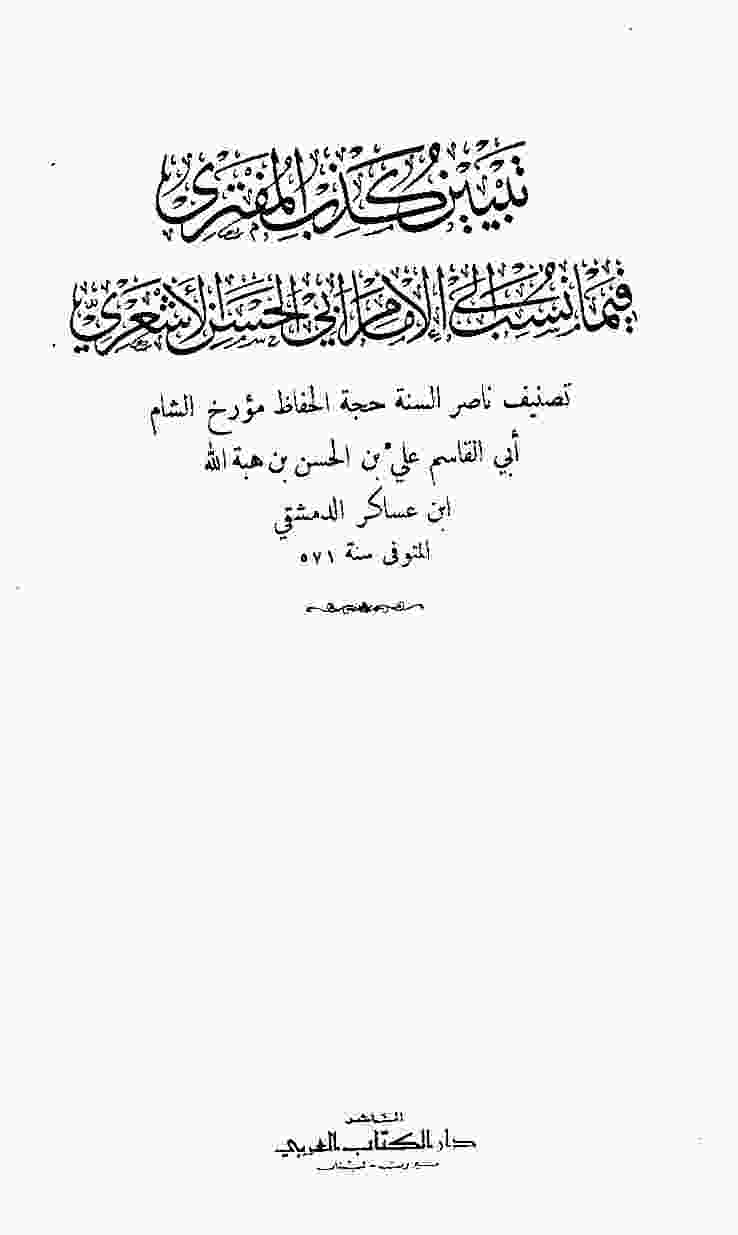 تبيين كذب المفتري
فيما نسب إلى الإمام أبي الحسن الأشعري
تصنيف ناصر السنة حجة الحفاظ مؤرخ الشام
أبي القاسم علي بن الحسن بن هبة الله
ابن عساكر الدمشقي
المتوفى سنة ٥٧١
الناشر
دار الكتاب العربي
بيروت - لبنان